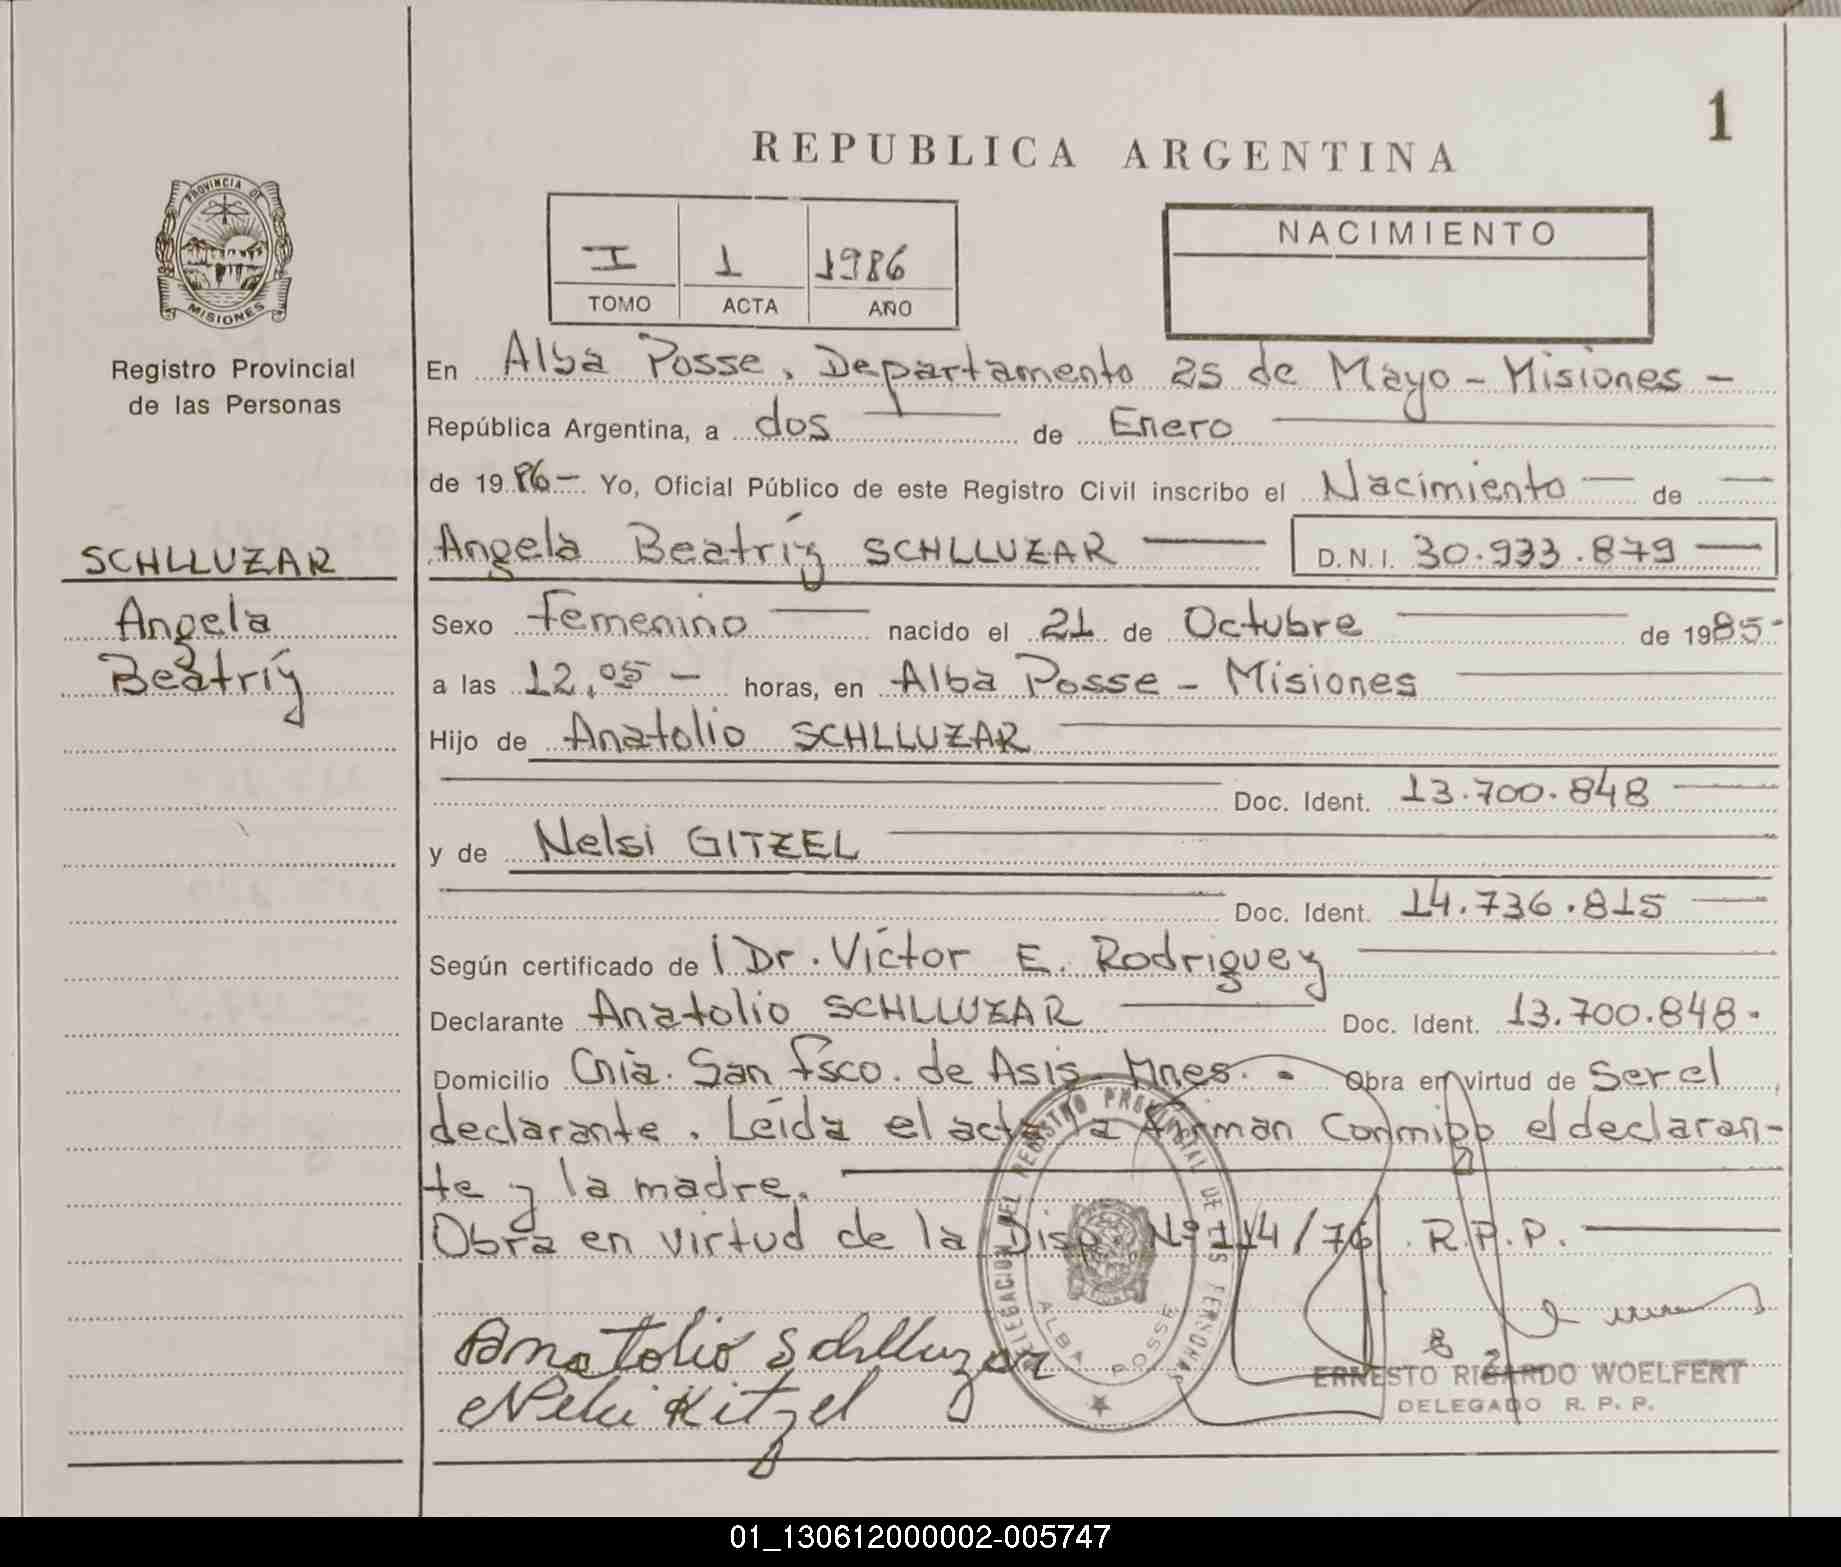 1
REPUBLICA ARGENTINA
PROVINCIA DE MISIONES
I 1 1986
TOMO ACTA AÑO
NACIMIENTO
Registro Provincial
de las Personas
En Alba Posse, Departamento 25 de Mayo - Misiones -
República Argentina, a dos de Enero
de 1986- Yo, Oficial Público de este Registro Civil inscribo el Nacimiento de
SCHLLUZAR
Angela
Beatríz
Angela Beatríz SCHLLUZAR D.N.I. 30.933.879
Sexo Femenino nacido el 21 de Octubre de 1985-
a las 12,05 - horas, en Alba Posse - Misiones
Hijo de Anatolio SCHLLUZAR
Doc. Ident. 13.700.848
y de Nelsi GITZEL
Doc. Ident. 14.736.815
Según certificado de l Dr. Víctor E. Rodriguez
Declarante Anatolio SCHLLUZAR Doc. Ident. 13.700.848.
Domicilio Cnia. San Fsco. de Asis Mnes. - Obra en virtud de Ser el
declarante. Leída el acta la firman Conmigo el declaran-
te y la madre.
Obra en virtud de la Disp. Nº 114/76 R.P.P.
DELEGACION DEL REGISTRO PROVINCIAL DE LAS PERSONAS
ALBA POSSE
Anatolio Schlluzar
Nelsi Kitzel
ERNESTO RICARDO WOELFERT
DELEGADO R. P. P.
01_130612000002-005747